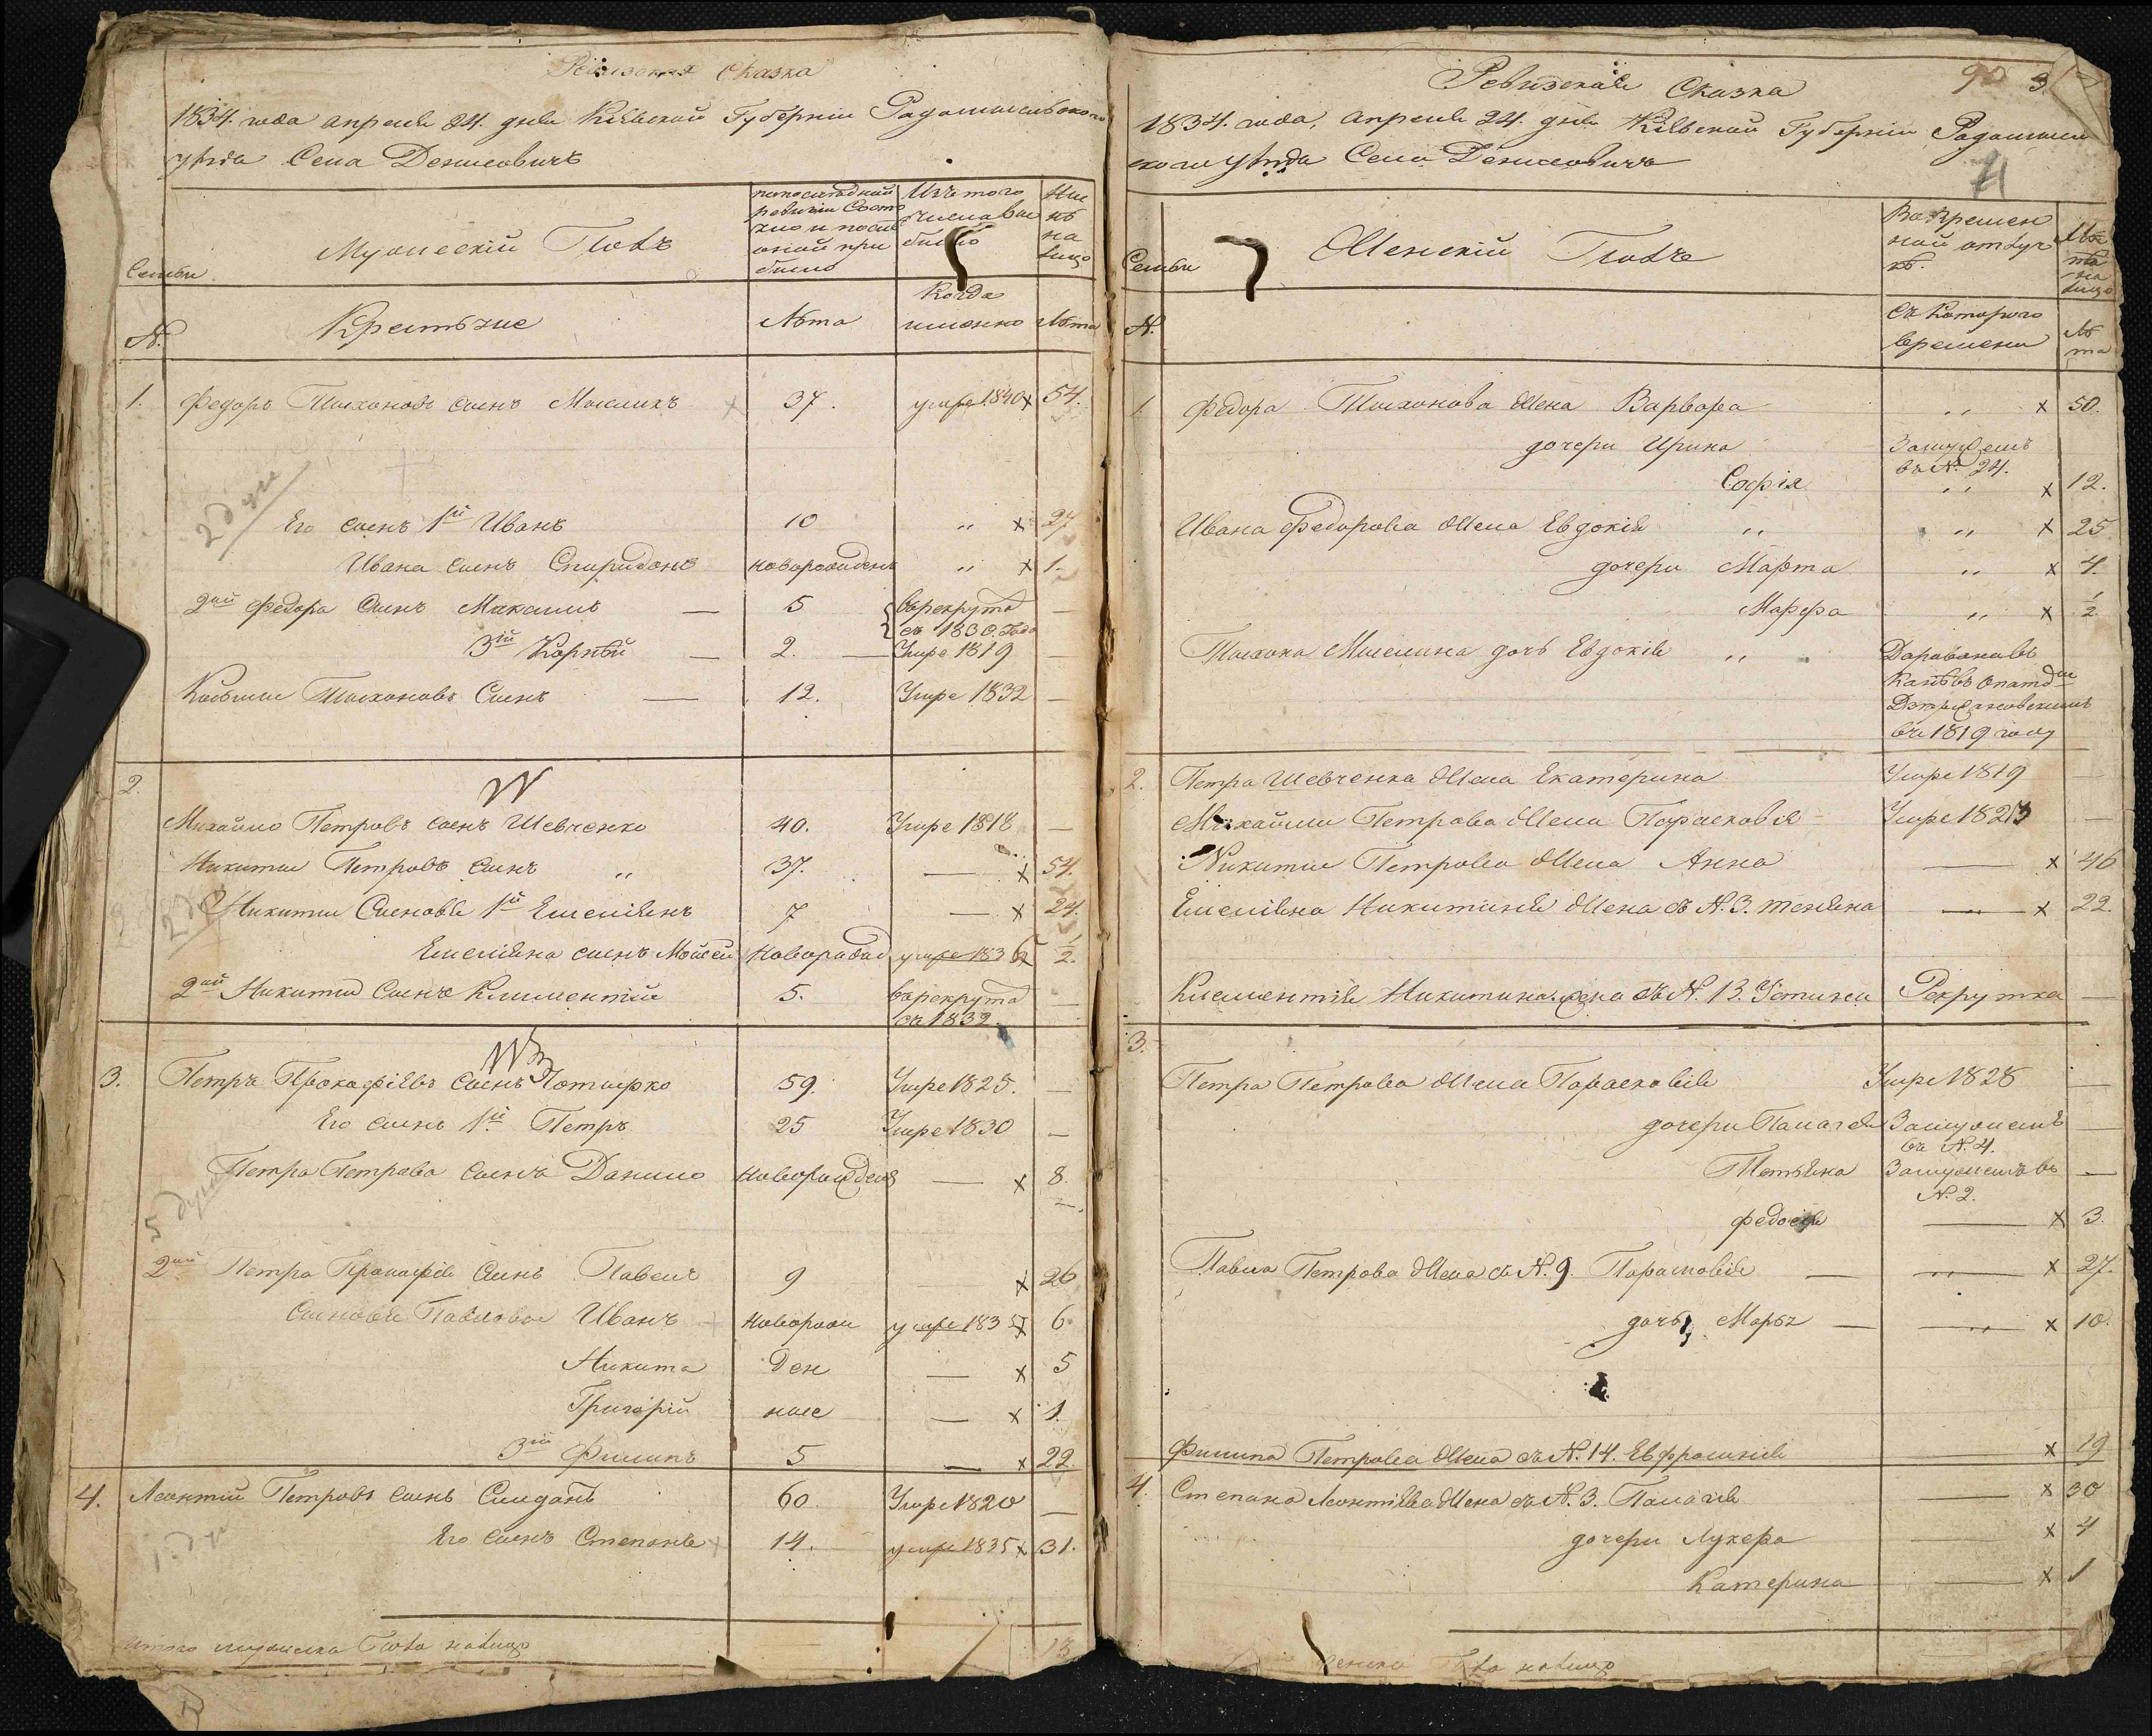 Ревизская Сказка
1834. года апреля 24. дня Кіевской Губерніи Радомысльского
уѣзда Села Денисовичъ
Мужескій Полъ
Семьи
по последней ревизіи Состояло и после оной прибыло
Изъ того числа выбыло
Ныне на лицо
N.
Крестьяне
Лѣта
Когда именно
Лѣта
1. Федоръ Тихоновъ сынъ 37. умре 1840 x 54.
2 души
Его сынъ 1й Иванъ 10 „ x 27
Ивана сынъ Спиридонъ новорожденъ „ x 1.
2ой Федора сынъ Максимъ — 5 в рекруты —
съ 1830. Года
3ій Корнѣй — 2. — Умре 1819
Тихоновъ Сынъ — 12. Умре 1832 —
2.
Михайло Петровъ сынъ Шевченко 40. Умре 1818 —
Никита Петровъ сынъ „ 37. — x 54.
Никиты Сыновья 1й Емеліянъ 7 — x 24.
Емеліяна сынъ Мойсей Новорожд умре 183 x 1/2.
2ой Никиты Сынъ Климентій 5. в рекруты —
съ 1832.
3. Петръ Прокофіевъ Сынъ 59. Умре 1825. —
Его сынъ 1й Петръ 25 Умре 1830 —
Петра Петрова сынъ Данило Новорожденъ — x 8.
5 душ
2ой Петра Прокофія Сынъ Павелъ 9 x 26
Сыновья Павловы Иванъ Новорож умре 1835 x 6
Никита ден — x 5
Григорій ные — x 1.
3ій Филипъ 5 — x 22.
4. Леонтій Петровъ сынъ 60. Умре 1820 —
Его сынъ Степанъ 14. умре 1835 x 31.
Итого мужеска Пола налицо 13
Ревизская Сказка
90 3
1834. года, апреля 24. дня Кіевской Губерніи Радомысль
ского уѣзда Села Денисовичъ
Семьи
Женскій Полъ
Во временной отлучкѣ.
на лицо
N.
Съ Которого времени
Лѣта
1. Федора Тихонова Жена Варвара „ x 50.
дочери Ирина Замужемъ
въ N. 24.
Софія „ x 12.
Ивана Федорова Жена Евдокія „ „ x 25
дочери Марта „ x 4.
Марфа „ x 1/2
Тихона дочь Евдокія „
въ 1819 году
2. Петра Шевченка Жена Екатерина Умре 1819 —
Михайлы Петрова Жена Парасковія Умре 182 —
Никиты Петрова Жена Анна — x 46
Емеліяна Никитина Жена съ N. 3. — x 22.
Климентія Никитина жена съ N. 13. Устинія Рекрутка —
3.
Петра Петрова Жена Парасковія Умре 1828 —
дочери Палагія Замужемъ —
въ N. 4.
Татьяна Замужемъ въ —
N. 2.
Федосія — x 3.
Павла Петрова Жена съ N. 9. — „ x 27.
дочь Марья — „ x 10.
Филипа Петрова Жена съ N. 14. Евфросинія x 19
4. Степана Леонтіева Жена съ N. 3. Палагія — x 30
дочери Лукера x 4
Катерина — x 1
налицо